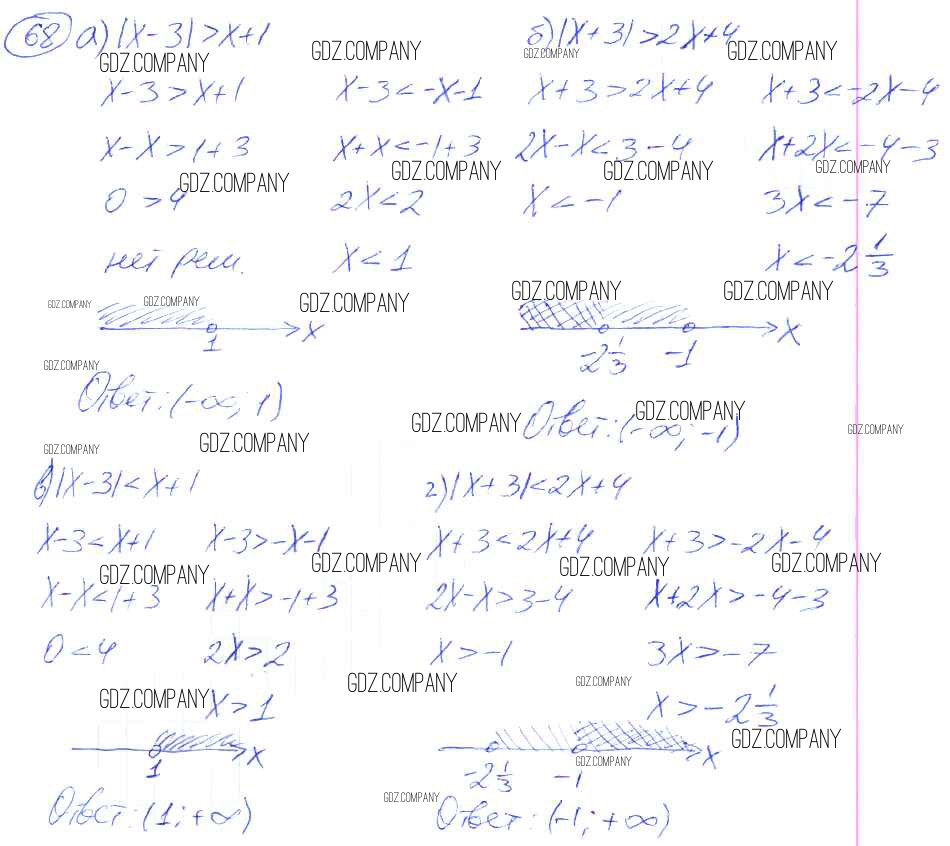 68 а) |x-3|>x+1 б) |x+3|>2x+4
GDZ.COMPANY GDZ.COMPANY GDZ.COMPANY GDZ.COMPANY
x-3>x+1 x-3<-x-1 x+3>2x+4 x+3<-2x-4
x-x>1+3 x+x<-1+3 2x-x<3-4 x+2x<-4-3
GDZ.COMPANY GDZ.COMPANY GDZ.COMPANY GDZ.COMPANY
0>4 2x<2 x<-1 3x<-7
нет реш. x<1 x<-2 1/3
GDZ.COMPANY GDZ.COMPANY GDZ.COMPANY GDZ.COMPANY GDZ.COMPANY
1 x -2 1/3 -1 x
GDZ.COMPANY
Ответ: (-∞; 1) Ответ: (-∞; -1)
GDZ.COMPANY GDZ.COMPANY GDZ.COMPANY
GDZ.COMPANY GDZ.COMPANY
в) |x-3|<x+1 г) |x+3|<2x+4
x-3<x+1 x-3>-x-1 x+3<2x+4 x+3>-2x-4
GDZ.COMPANY GDZ.COMPANY GDZ.COMPANY GDZ.COMPANY
x-x<1+3 x+x>-1+3 2x-x>3-4 x+2x>-4-3
0<4 2x>2 x>-1 3x>-7
GDZ.COMPANY GDZ.COMPANY GDZ.COMPANY
x>1 x>-2 1/3
GDZ.COMPANY
1 x -2 1/3 -1 x
GDZ.COMPANY GDZ.COMPANY
Ответ: (1; +∞) Ответ: (-1; +∞)